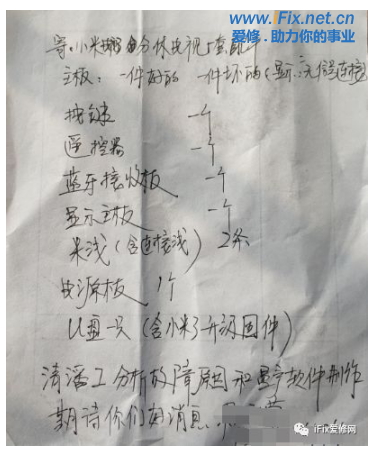 www.iFix.net.cn
爱修.助力你的事业
寄:小米 分体电视一套配件
主板: 一件好的 一件坏的(显示无信号连接)
按键 一个
遥控器 一个
蓝牙接收板 一个
显示主板 一个
米线(含连接线) 2条
电源板 1个
U盘一只(含小米3升级固件)
请潘工分析故障原因和量产软件制作
期待你们好消息.
iFix爱修网